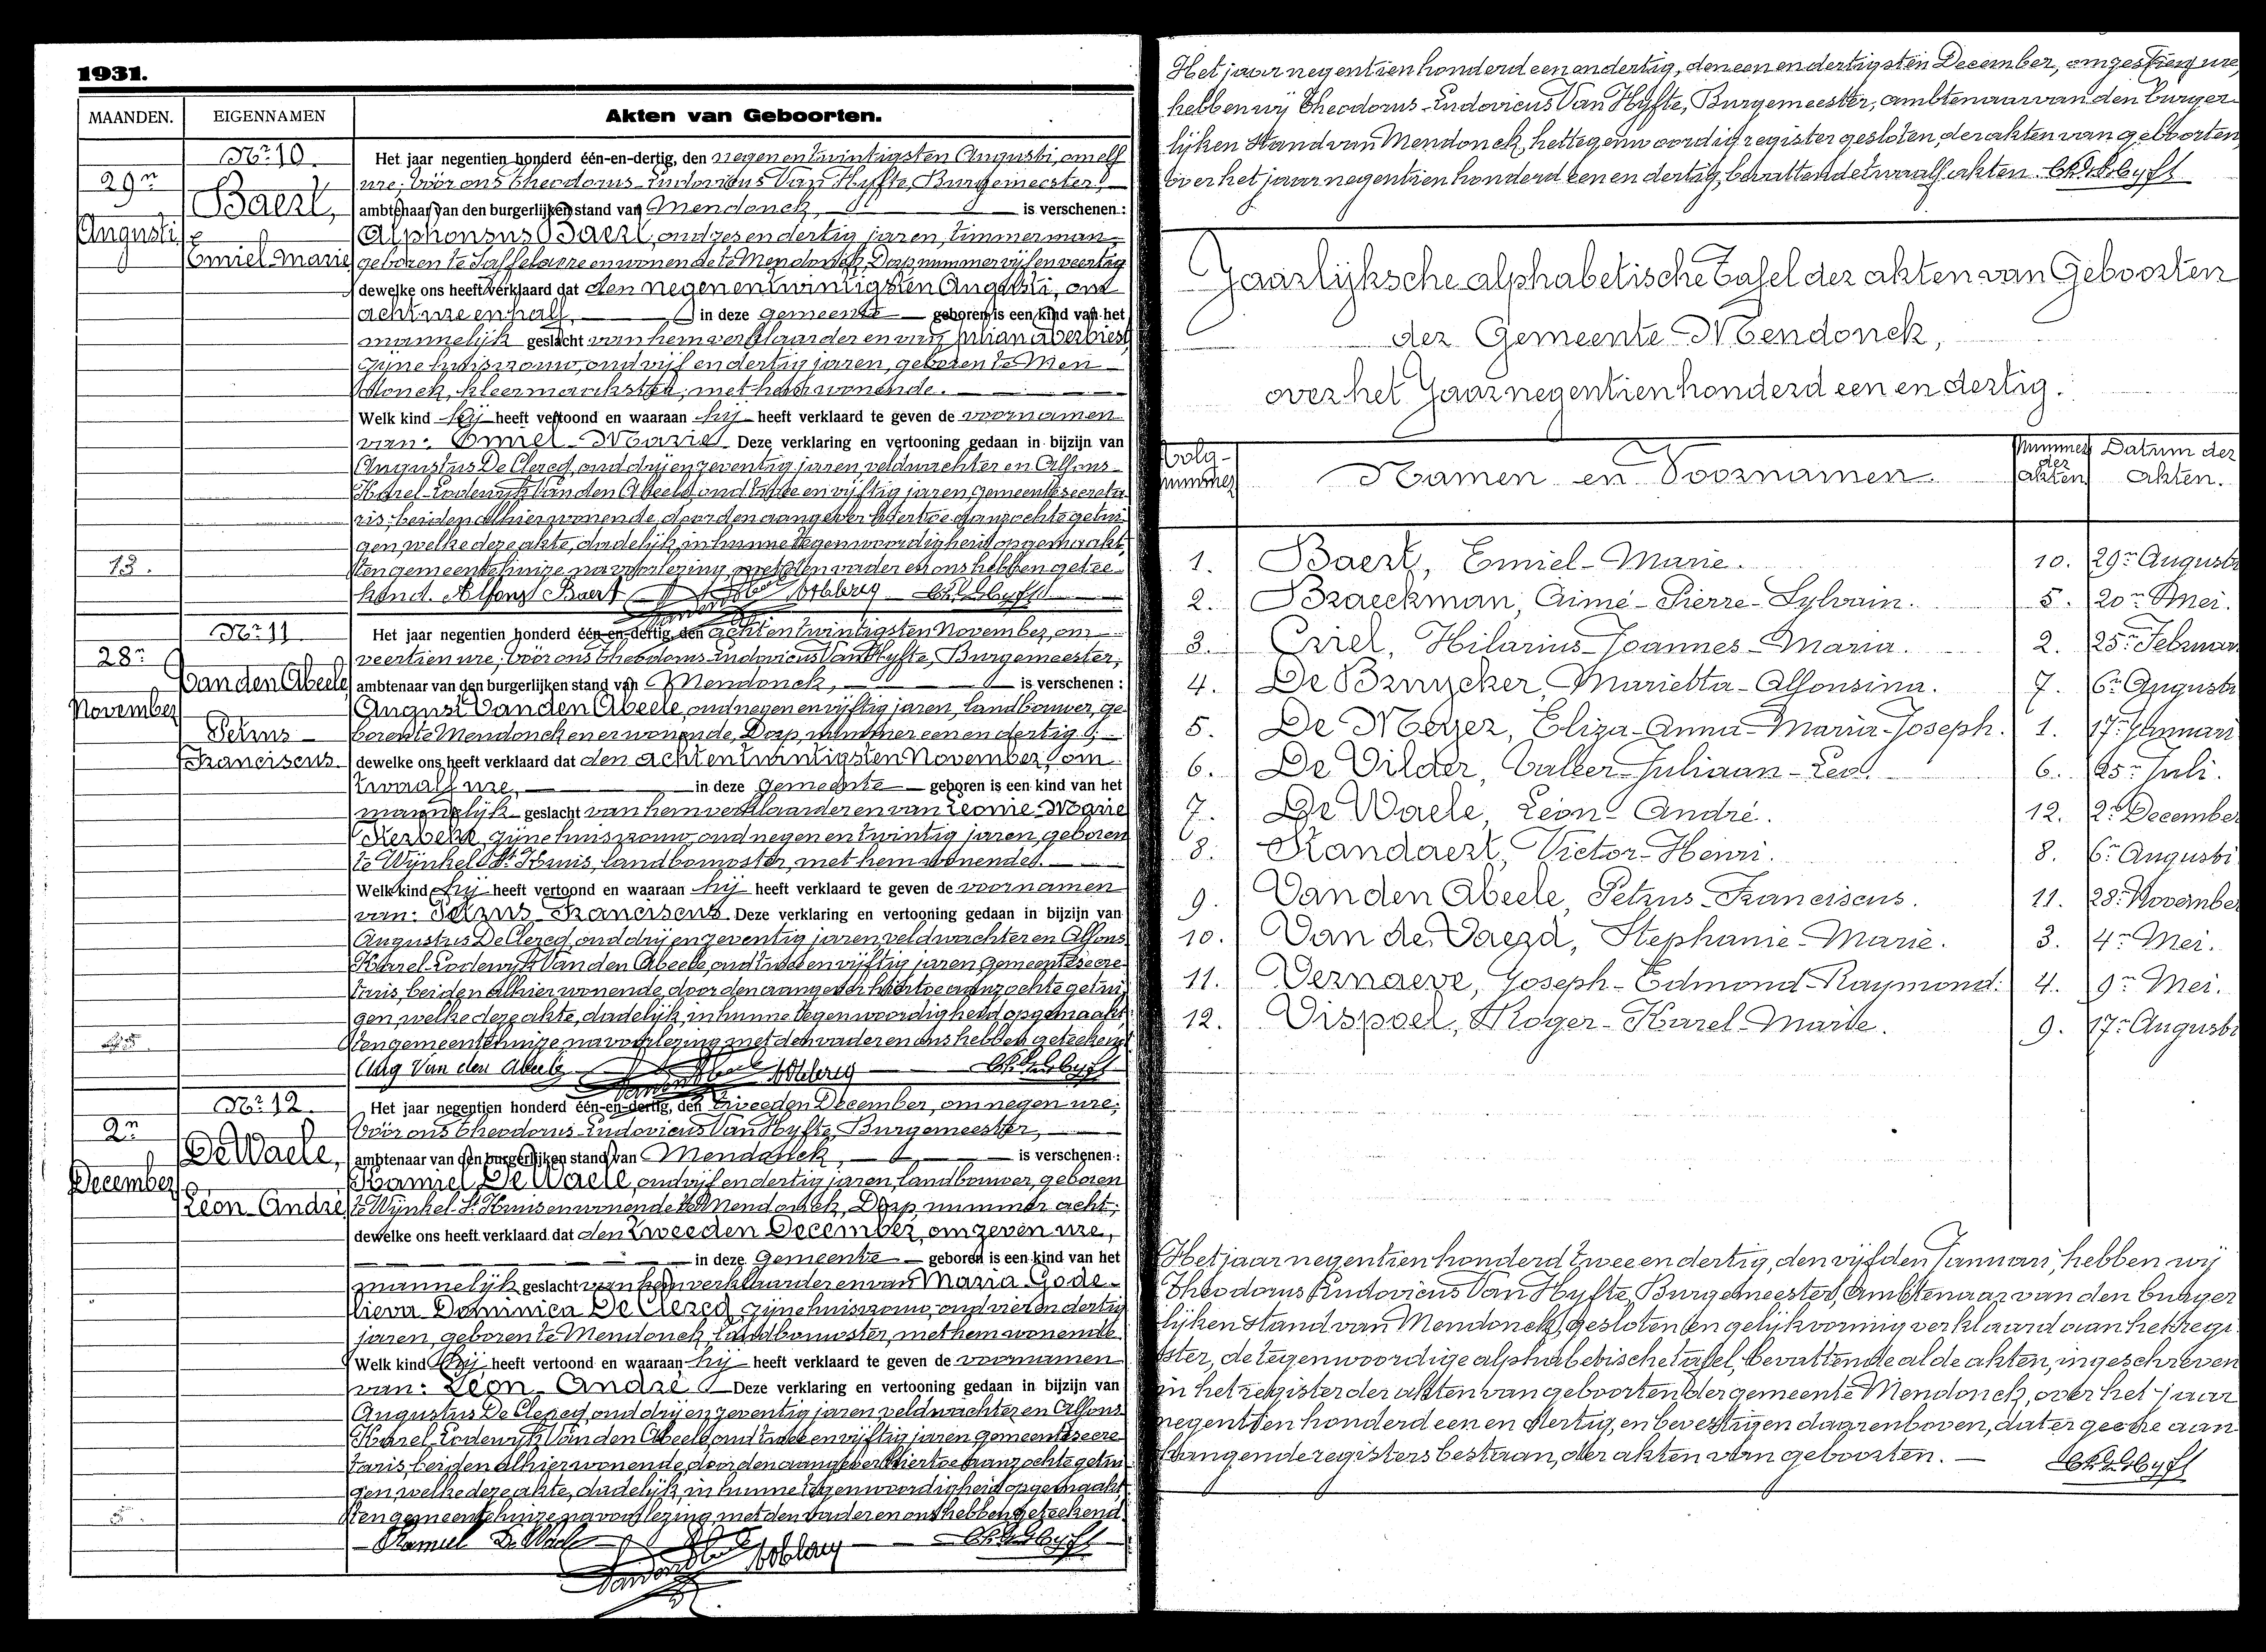 1931.
MAANDEN. EIGENNAMEN Akten van Geboorten.
Nr 10.
29n
Augusti
Baert,
Emiel Marie
Het jaar negentien honderd één-en-dertig, den negen en twintigsten Augusti, om elf
ure, vóór ons Theodorus Ludovicus Van Hyfte, Burgemeester,
ambtenaar van den burgerlijken stand van Mendonck, is verschenen:
Alphonsus Baert, oud zes en dertig jaren, timmerman,
geboren te Saffelaere en wonende te Mendonck, Dorp, nummer vijf en veertig
dewelke ons heeft verklaard dat den negen en twintigsten Augusti, om
acht ure en half, in deze gemeente geboren is een kind van het
mannelijk geslacht van hem verklaarder en van Juliana Verbiest
zijne huisvrouw, oud vijf en dertig jaren, geboren te Men
donck, kleermaakster, met hem wonende.
Welk kind hij heeft vertoond en waaraan hij heeft verklaard te geven de voornamen
van: Emiel-Marie Deze verklaring en vertooning gedaan in bijzijn van
Augustus De Clercq, oud drij en zeventig jaren, veldwachter en Alfons
Karel-Lodewijk Van den Abeele, oud twee en vijftig jaren gemeentesecreta
ris, beiden alhier wonende, door den aangever hiertoe aanzochte getui
gen, welke deze akte, dadelijk, in hunne tegenwoordigheid opgemaakt,
ten gemeentehuize na voorlezing met den vader en ons hebben getee
kend. Alfons Baert
13.
Nr 11
28n
November
Van den Abeele
Petrus
Franciscus
Het jaar negentien honderd één-en-dertig, den acht en twintigsten November, om
veertien ure, vóór ons Theodorus Ludovicus Van Hyfte, Burgemeester,
ambtenaar van den burgerlijken stand van Mendonck, is verschenen:
August Van den Abeele, oud negen en vijftig jaren, landbouwer, ge
boren te Mendonck en er wonende, Dorp, nummer een en dertig,
dewelke ons heeft verklaard dat den acht en twintigsten November, om
twaalf ure, in deze gemeente geboren is een kind van het
mannelijk geslacht van hem verklaarder en van Leonie Marie
zijne huisvrouw, oud negen en twintig jaren, geboren
te Wijnkel St Kruis, landbouwster, met hem wonende.
Welk kind hij heeft vertoond en waaraan hij heeft verklaard te geven de voornamen
van: Petrus Franciscus Deze verklaring en vertooning gedaan in bijzijn van
Augustus De Clercq, oud drij en zeventig jaren veldwachter en Alfons
Karel-Lodewijk Van den Abeele, oud twee en vijftig jaren gemeentesecre
taris, beiden alhier wonende, door den aangever hiertoe aanzochte getui
gen, welke deze akte, dadelijk, in hunne tegenwoordigheid opgemaakt
ten gemeentehuize na voorlezing met den vader en ons hebben geteekend
Aug Van den Abeele
Nr 12.
2n
December
De Waele,
Léon-André
Het jaar negentien honderd één-en-dertig, den tweeden December, om negen ure,
vóór ons Theodorus Ludovicus Van Hyfte, Burgemeester,
ambtenaar van den burgerlijken stand van Mendonck is verschenen:
Kamiel De Waele, oud vijf en dertig jaren, landbouwer, geboren
te Wijnkel-St Kruis en wonende te Mendonck, Dorp, nummer acht,
dewelke ons heeft verklaard dat den tweeden December, om zeven ure,
in deze gemeente geboren is een kind van het
mannelijk geslacht van hem verklaarder en van Maria Gode
lieva Dominica De Clercq zijne huisvrouw, oud vier en dertig
jaren, geboren te Mendonck, landbouwster, met hem wonende
Welk kind hij heeft vertoond en waaraan hij heeft verklaard te geven de voornamen
van: Léon-André Deze verklaring en vertooning gedaan in bijzijn van
Augustus De Clercq, oud drij en zeventig jaren veldwachter en Alfons
Karel-Lodewijk Van den Abeele, oud twee en vijftig jaren gemeentesecre
taris, beiden alhier wonende, door den aangever hiertoe aanzochte getui
gen, welke deze akte, dadelijk, in hunne tegenwoordigheid opgemaakt
ten gemeentehuize na voorlezing, met den vader en ons hebben geteekend
Kamiel De Waele
Het jaar negentien honderd een en dertig, den een en dertigsten December, om zestien ure,
hebben wij Theodorus-Ludovicus Van Hyfte, Burgemeester, ambtenaar van den burger-
lijken Stand van Mendonck, het tegenwoordig register gesloten, der akten van geboorten
over het jaar negentien honderd een en dertig, bevattende twaalf akten.
Jaarlijksche alphabetische Tafel der akten van Geboorten
der Gemeente Mendonck,
over het Jaar negentien honderd een en dertig.
Volg-nummer Namen en Voornamen. Nummer der akten Datum der akten.
1. Baert, Emiel-Marie. 10. 29n Augusti
2. Braeckman, Aimé-Pierre-Sylvain. 5. 20n Mei.
3. Criel, Hilarius-Joannes-Maria. 2. 25n Februari
4. De Bruycker, Marietta-Alfonsina. 7. 6n Augusti
5. De Meyer, Eliza-Anna-Maria-Joseph. 1. 17n Januari
6. De Vilder, Valler-Juliaan-Leo. 6. 25n Juli.
7. De Waele, Léon-André. 12. 2n December
8. Standaert, Victor-Henri. 8. 6n Augusti
9. Van den Abeele, Petrus-Franciscus. 11. 28n November
10. Van de Vaerd, Stephanie-Marie. 3. 4n Mei.
11. Vernaeve, Joseph-Edmond-Raymond. 4. 9n Mei.
12. Vispoel, Roger-Karel-Marie. 9. 17n Augusti
Het jaar negentien honderd twee en dertig, den vijfden Januari, hebben wij
Theodorus Ludovicus Van Hyfte, Burgemeester, Ambtenaar van den burger
lijken stand van Mendonck, gesloten en gelijkvormig verklaard aan het regi
ster, de tegenwoordige alphabetische tafel, bevattende al de akten, ingeschreven
in het register der akten van geboorten der gemeente Mendonck, over het jaar
negentien honderd een en dertig, en bevestigen daarenboven, dat er geene aan
hangende registers bestaan, der akten van geboorten.